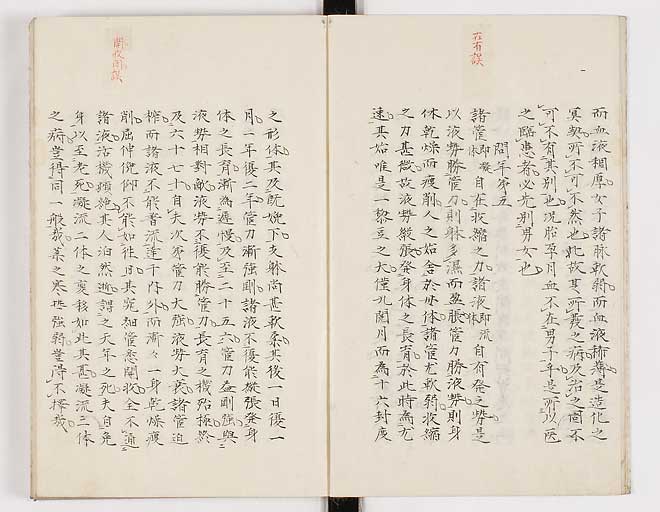 在有誤
而血液稠厚女子諸脉軟弱而血液稀薄是造化之
冥契所不可不然也此故其所發之病及治之固不
可不有其別也況胎孕月血不在男子乎是所以医
之臨患者必先別男女也
問年第五
諸管即凝自在收縮之力諸液即流自有發之勢是
以液勢勝管力則躰多濕而蒸脹管力勝液勢則身
体乾燥而瘦削人之始舎於母体諸管尤軟弱收縮
之力甚微故液勢縱張發身体之長育於此時為尤
速其始唯是一黍豆之大僅九閱月而為十六封度
開收閉誤
之形体其及既娩下支躰尚甚軟柔其後一日優一
月一年優二年管力漸強剛諸液不復能縱張發身
体之長育漸為遲慢及至二十五六管力益剛強與
液勢相對敵液勢不復能勝管力長育之機殆極終
及六十七十自夫次第管力大強液勢大衰諸管迫
搾而諸液不能普流達于内外而漸々一身乾燥瘦
削屈伸俛仰不能如往日其究細管悉閉收全不通
諸液活機頓絶其人泊然逝謂之天年之死夫自免
身以至老死凝流二体之變移如此其甚凝流二体
之病豈得同一般哉薬之寒熱強弱豈得不擇哉